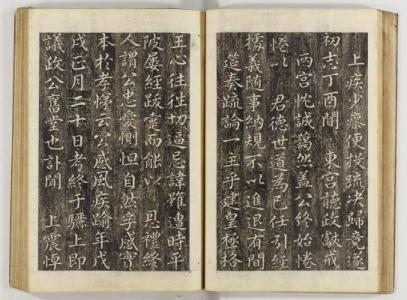 上疾少瘳便投疏决歸竟遂
初吉丁酉間 東宮聽政獻戒
兩宮忱誠藹然盖公終始惓
惓以 君德世道為已任引經
據義随事納規不以進退有間
造奏疏論一王乎建皇極格
王心往往切逼忌諱雖遭時平
陂屢經跋疐而能以 恩禮終
人謂公忠愛惻怛自然孚感實
本於孝悌云公感風疾踰年戊
戌正月二十日考終于驪上即
議政公舊堂也訃聞 上震悼